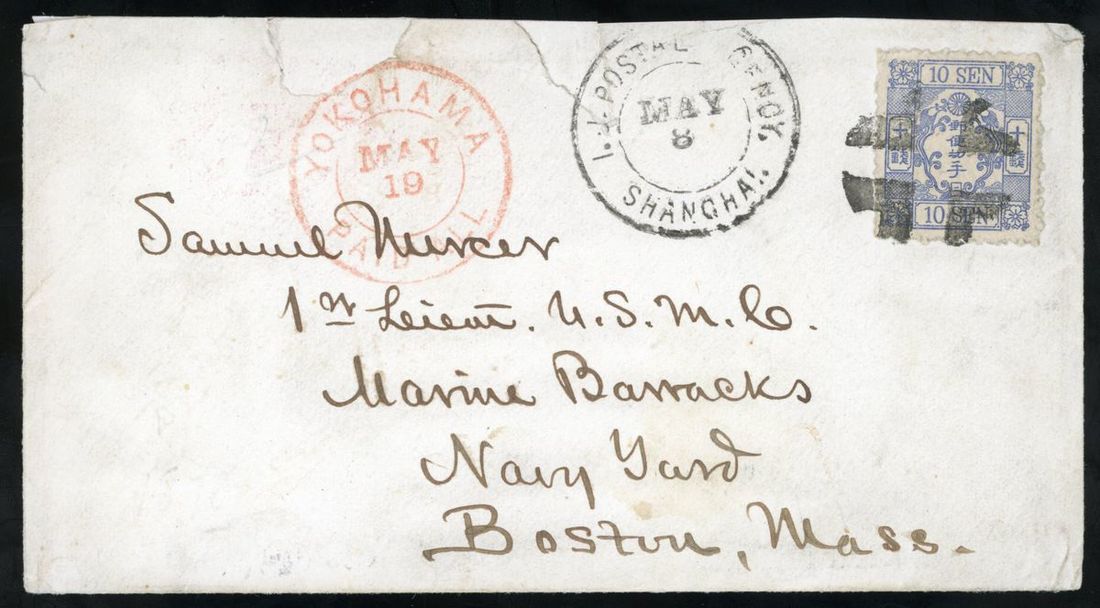 YOKOHAMA
MAY
19
PAID ALL
I.J. POSTAL GENCY.
MAY
8
SHANGHAI.
10 SEN
十錢
郵便切手
十錢
10 SEN
Samuel Mercer
1st Lieut. U.S.M.C.
Marine Barracks
Navy Yard
Boston, Mass.